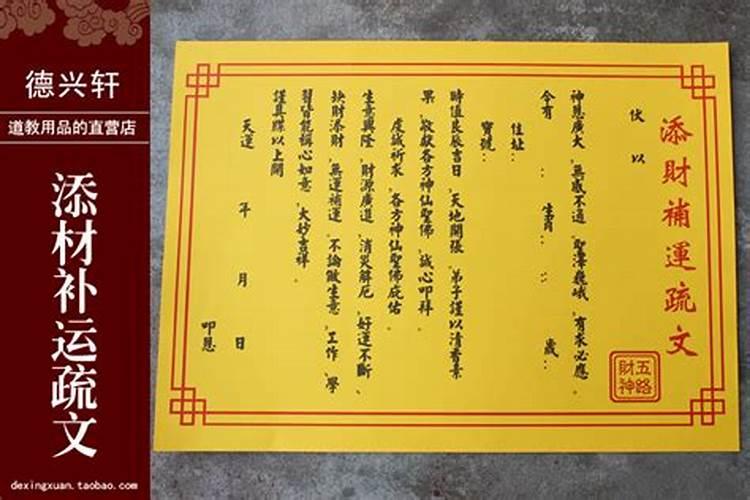 德兴轩
道教用品的直营店
添材补运疏文
dexingxuan.taobao.com
添財補運疏文
五路財神
伏以
神恩廣大、無感不通、聖澤巍峨、有求必應。
今有：生肖：：歲、
住址：
寶號：
時值良辰吉日、天地開張、弟子謹以清香素
果、敬獻各方神仙聖佛、誠心叩拜。
虔誠祈求、各方神仙聖佛庇佑。
生意興隆、財源廣進、消災解厄、好運不斷、
缺財添財、無運補運、不論做生意、工作、學
習皆能稱心如意、大妙吉祥。
謹具牒以上聞
天運　年　月　日
叩恩